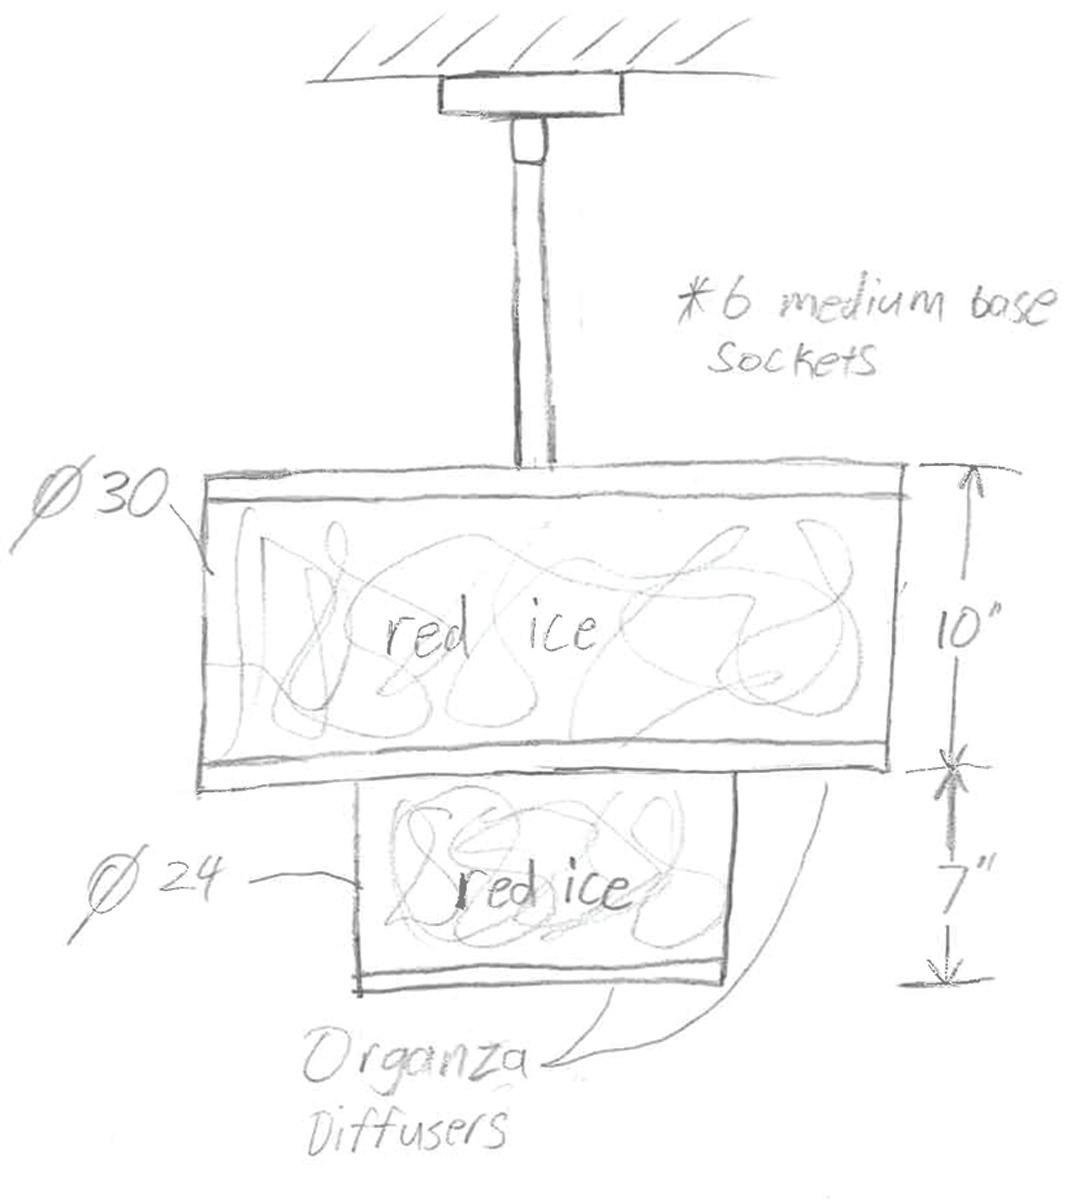 *6 medium base
sockets
Ø 30
red ice
10"
Ø 24
red ice
7"
Organza
Diffusers